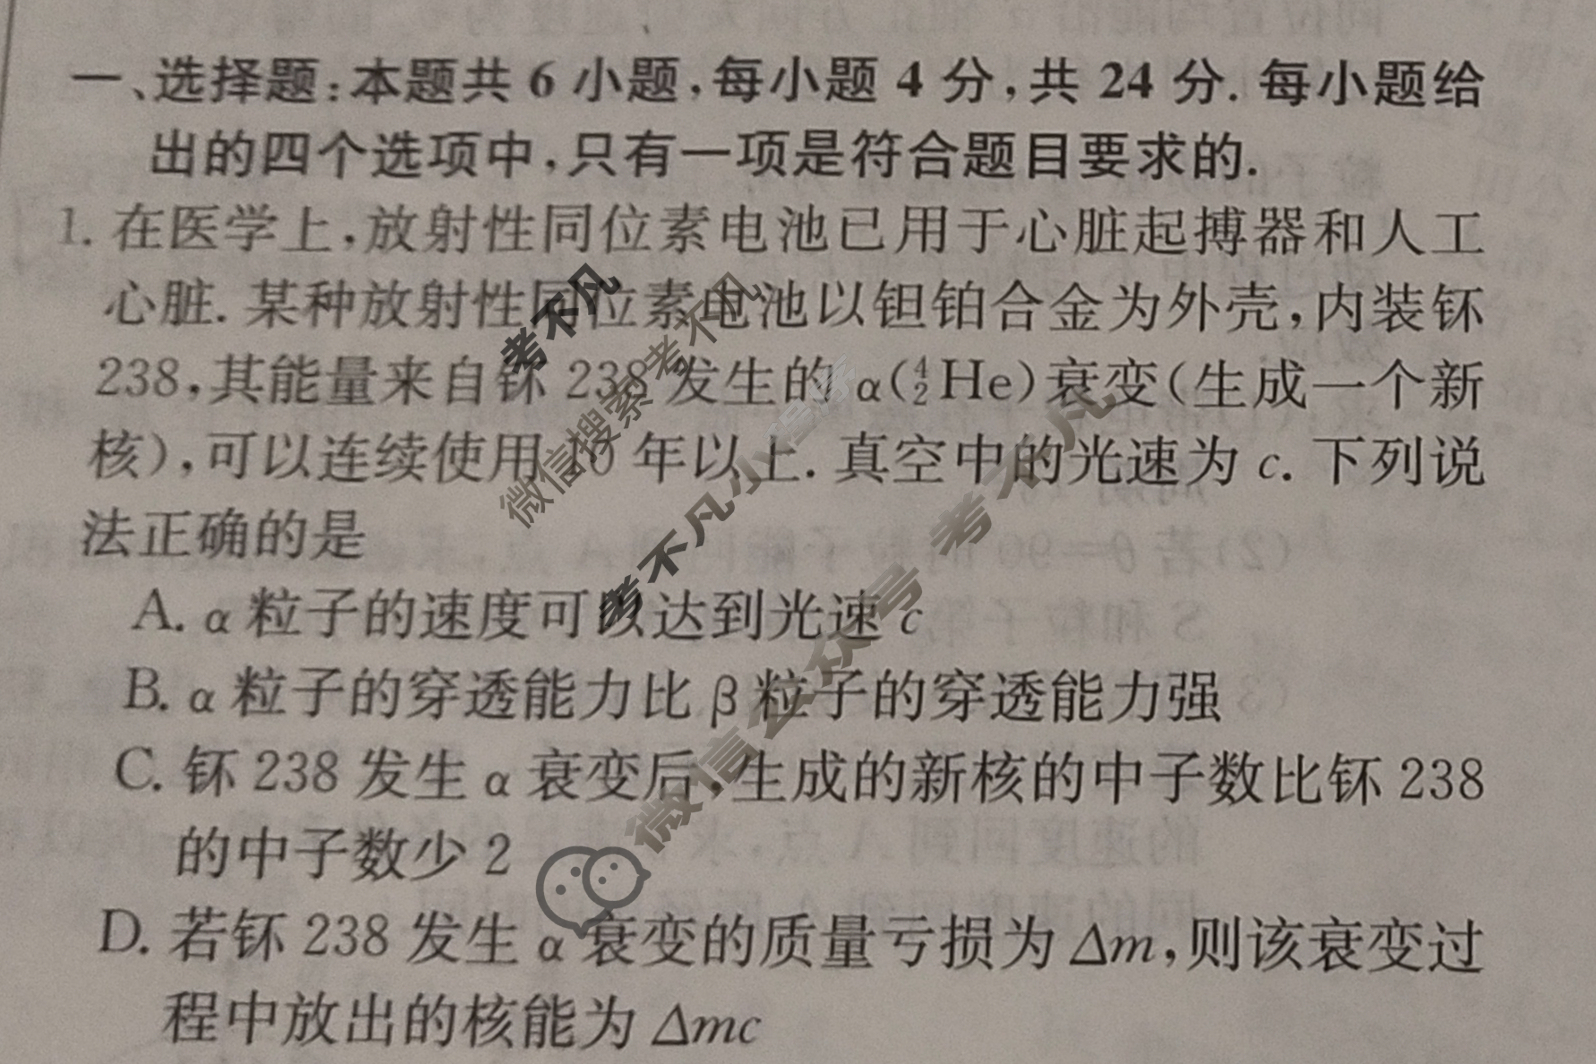 一、选择题:本题共 6 小题,每小题 4 分,共 24 分. 每小题给
出的四个选项中,只有一项是符合题目要求的.
1. 在医学上,放射性同位素电池已用于心脏起搏器和人工
心脏. 某种放射性同位素电池以钽铂合金为外壳,内装钚
238,其能量来自钚 238 发生的 α(⁴₂He)衰变(生成一个新
核),可以连续使用 10 年以上. 真空中的光速为 c. 下列说
法正确的是
A. α 粒子的速度可以达到光速 c
B. α 粒子的穿透能力比 β 粒子的穿透能力强
C. 钚 238 发生 α 衰变后,生成的新核的中子数比钚 238
的中子数少 2
D. 若钚 238 发生 α 衰变的质量亏损为 Δm,则该衰变过
程中放出的核能为 Δmc
考不凡
微信搜索 考不凡
考不凡小
微信公众号 考不凡